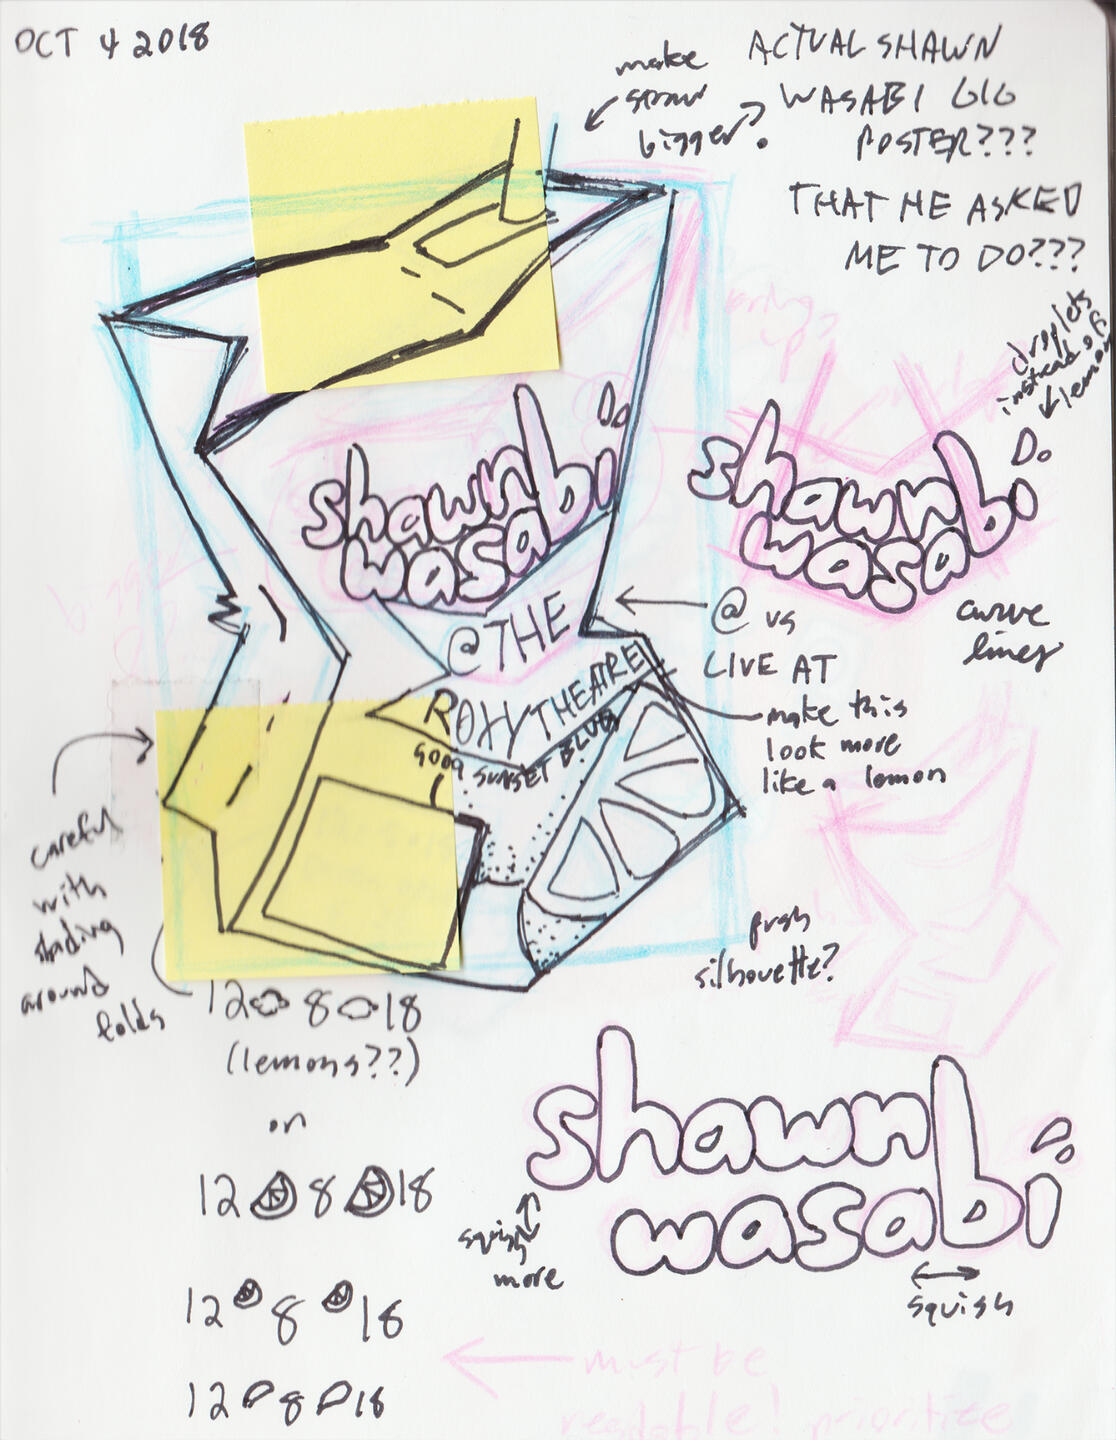 OCT 4 2018
make
straw
bigger?
ACTUAL SHAWN
WASABI GIG
POSTER???
THAT HE ASKED
ME TO DO???
droplets
instead of
lemon
shawn
wasabi
shawn
wasabi
curve
lines
@THE
ROXY THEATRE
9009 SUNSET BLVD
@ vs
LIVE AT
make this
look more
like a lemon
careful
with
shading
around
folds
push
silhouette?
12 8 18
(lemons??)
or
12 8 18
12 8 18
12 8 18
shawn
wasabi
squish
more
squish
must be
readable! prioritize